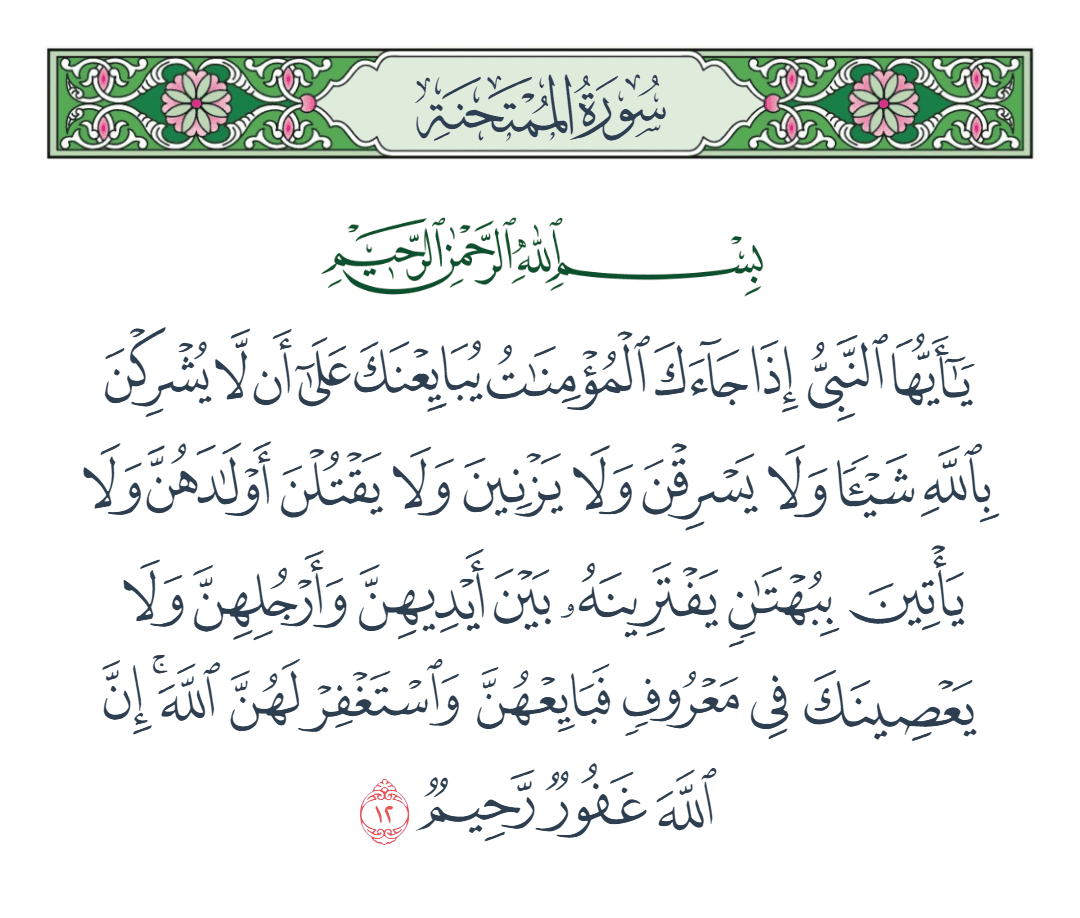 سُورَةُ المُمْتَحنَةِ
بِسْمِ ٱللَّهِ ٱلرَّحْمَٰنِ ٱلرَّحِيمِ
يَٰٓأَيُّهَا ٱلنَّبِىُّ إِذَا جَآءَكَ ٱلْمُؤْمِنَٰتُ يُبَايِعْنَكَ عَلَىٰٓ أَن لَّا يُشْرِكْنَ
بِٱللَّهِ شَيْـًٔا وَلَا يَسْرِقْنَ وَلَا يَزْنِينَ وَلَا يَقْتُلْنَ أَوْلَٰدَهُنَّ وَلَا
يَأْتِينَ بِبُهْتَٰنٍ يَفْتَرِينَهُۥ بَيْنَ أَيْدِيهِنَّ وَأَرْجُلِهِنَّ وَلَا
يَعْصِينَكَ فِى مَعْرُوفٍ فَبَايِعْهُنَّ وَٱسْتَغْفِرْ لَهُنَّ ٱللَّهَ ۚ إِنَّ
ٱللَّهَ غَفُورٌ رَّحِيمٌ ١٢